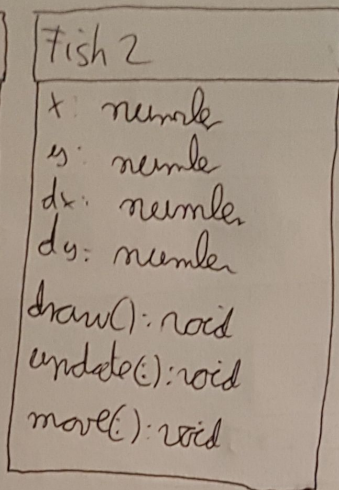 Fish 2
x: number
y: number
dx: number
dy: number
draw(): void
update(): void
move(): void